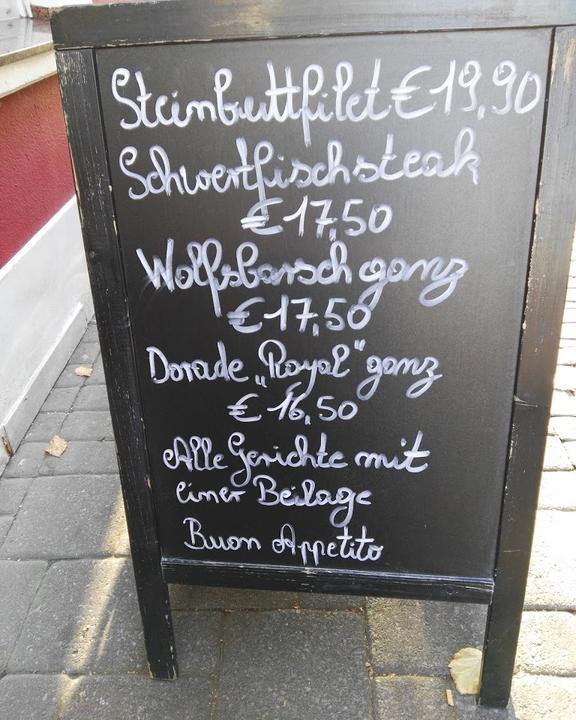 Steinbuttfilet € 19,90
Schwertfischsteak
€ 17,50
Wolfsbarsch ganz
€ 17,50
Dorade „Royal" ganz
€ 16,50
Alle Gerichte mit
einer Beilage
Buon Appetito